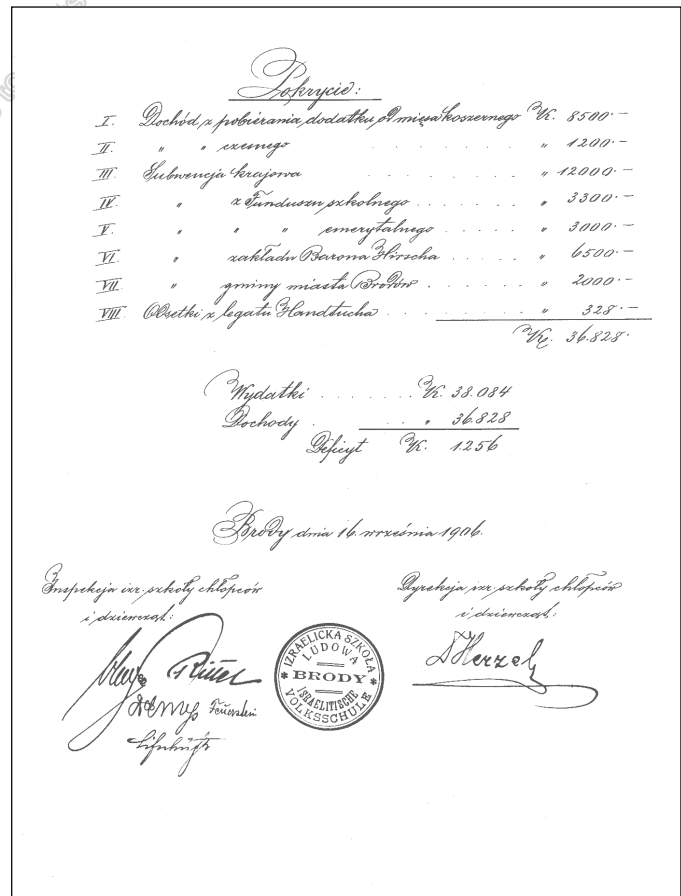 Pokrycie:
I. Dochód z pobierania dodatku od mięsa koszernego K. 8500.–
II. " " czesnego . . . . . . . " 1200.–
III. Subwencja krajowa . . . . . . . " 12000.–
IV. " z Funduszu szkolnego . . . . . " 3300.–
V. " " " emerytalnego . . . . " 3000.–
VI. " zakładu Barona Hirscha . . . . " 6500.–
VII. " gminy miasta Brodów . . . . " 2000.–
VIII. Odsetki z legatu Handtucha . . . . . " 328.–
K. 36.828.
Wydatki . . . . . . . K. 38.084
Dochody . . . . " 36.828
Deficyt K. 1.256
Brody dnia 16. września 1906.
Inspekcja izr. szkoły chłopców
i dziewcząt:
Dyrekcja izr. szkoły chłopców
i dziewcząt:
Rittel
Feuerstein
IZRAELICKA SZKOŁA
LUDOWA
* BRODY *
ISRAELITISCHE
VOLKSSCHULE
D Herzel